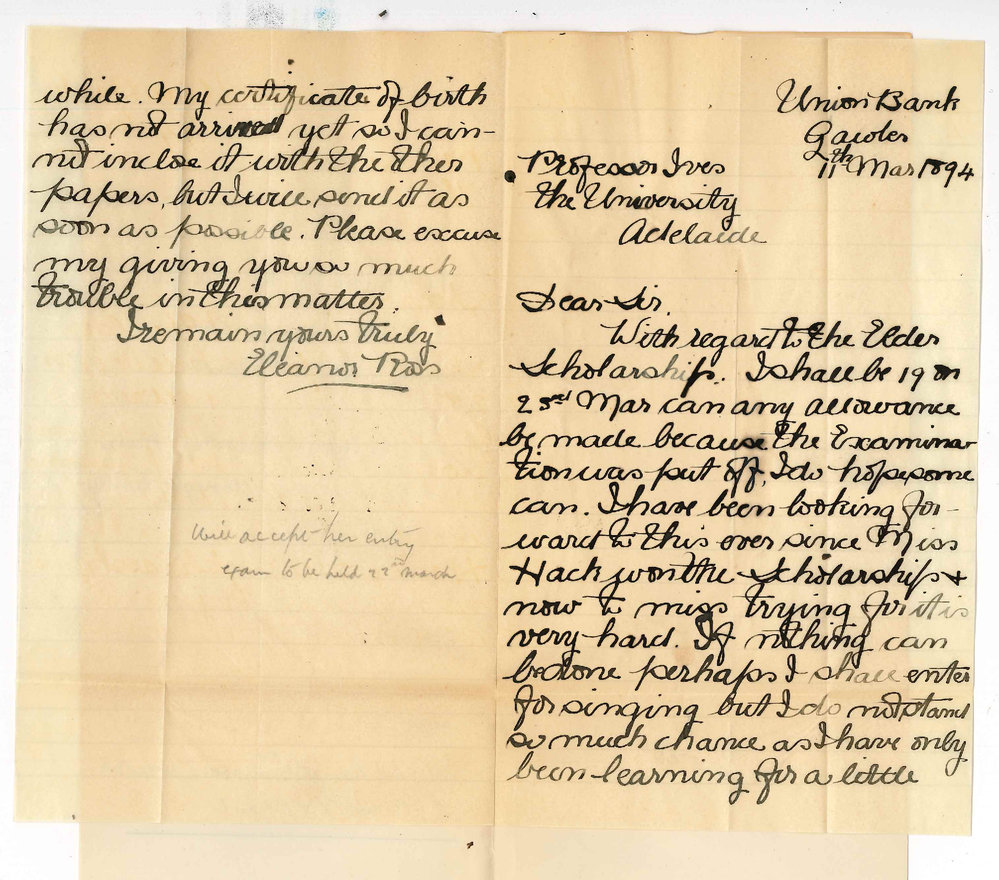 Union Bank
Gawler
11th Mar 1894
Professor Ives
the University
Adelaide
Dear Sir,
With regard to the Elder
Scholarship. I shall be 19 on
23rd Mar can any allowance
be made because the Examina-
tion was put off, I do hope some
can. I have been looking for-
ward to this ever since Miss
Hack won the Scholarship &
now to miss trying for it is
very hard. If nothing can
be done perhaps I shall enter
for singing but I do not stand
so much chance as I have only
been learning for a little
while. My certificate of birth
has not arrived yet so I can-
not inclose it with the other
papers, but I will send it as
soon as possible. Please excuse
my giving you so much
trouble in this matter.
I remain yours truly
Eleanor Ross
Will accept her entry
exam to be held 22nd March